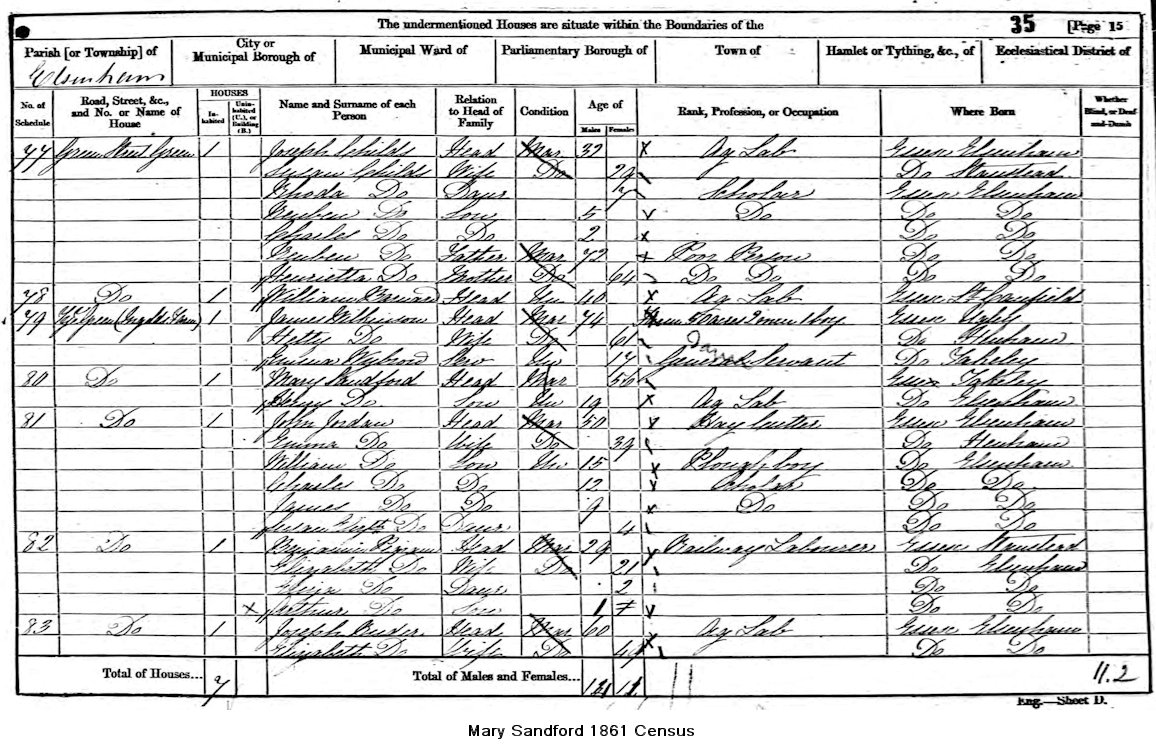 The undermentioned Houses are situate within the Boundaries of the 35 [Page 15
Parish [or Township] of City or Municipal Borough of Municipal Ward of Parliamentary Borough of Town of Hamlet or Tything, &c., of Ecclesiastical District of
Elsenham
No. of Schedule Road, Street, &c., and No. or Name of House HOUSES Inhabited Uninhabited (U.), or Building (B.) Name and Surname of each Person Relation to Head of Family Condition Age of Males Females Rank, Profession, or Occupation Where Born Whether Blind, or Deaf-and-Dumb
77 Green Street Green 1 Joseph Childs Head Mar 32 Ag Lab Essex Elsenham
Susan Childs Wife Do 29 Do Stanstead
Rhoda Do Daur 7 Scholar Essex Elsenham
Reuben Do Son 5 Do Do Do
Charles Do Do 2 Do Do
Reuben Do Father Mar 72 Poor Person Do Do
Henrietta Do Mother Do 64 Do Do Do Do
78 Do 1 William Head Un 40 Ag Lab Essex Canfield
79 1 James Wilkinson Head Mar 74 Essex
Hetty Do Wife Do 61 Do Henham
Emma Serv Un 17 General Servant Do Takeley
80 Do 1 Mary Sandford Head Mar 56 Essex Takeley
Henry Do Son Un 19 Ag Lab Do Elsenham
81 Do 1 John Jordan Head Mar 50 Hay Cutter Essex Elsenham
Emma Do Wife Do 39 Do Henham
William Do Son Un 15 Ploughboy Do Elsenham
Charles Do Do 12 Scholar Do Do
James Do Do 9 Do Do Do
Susan Do Daur 4 Do Do
82 Do 1 Benjamin Head Mar 29 Railway Labourer Essex Stanstead
Elizabeth Do Wife Do 21 Do Elsenham
Eliza Do Daur 2 Do Do
× Arthur Do Son 1 Do Do
83 Do 1 Joseph Head Mar 60 Ag Lab Essex Elsenham
Elizabeth Do Wife Do 49 Do Do
Total of Houses... 7 Total of Males and Females... 11 11.2
Eng.—Sheet D.
Mary Sandford 1861 Census